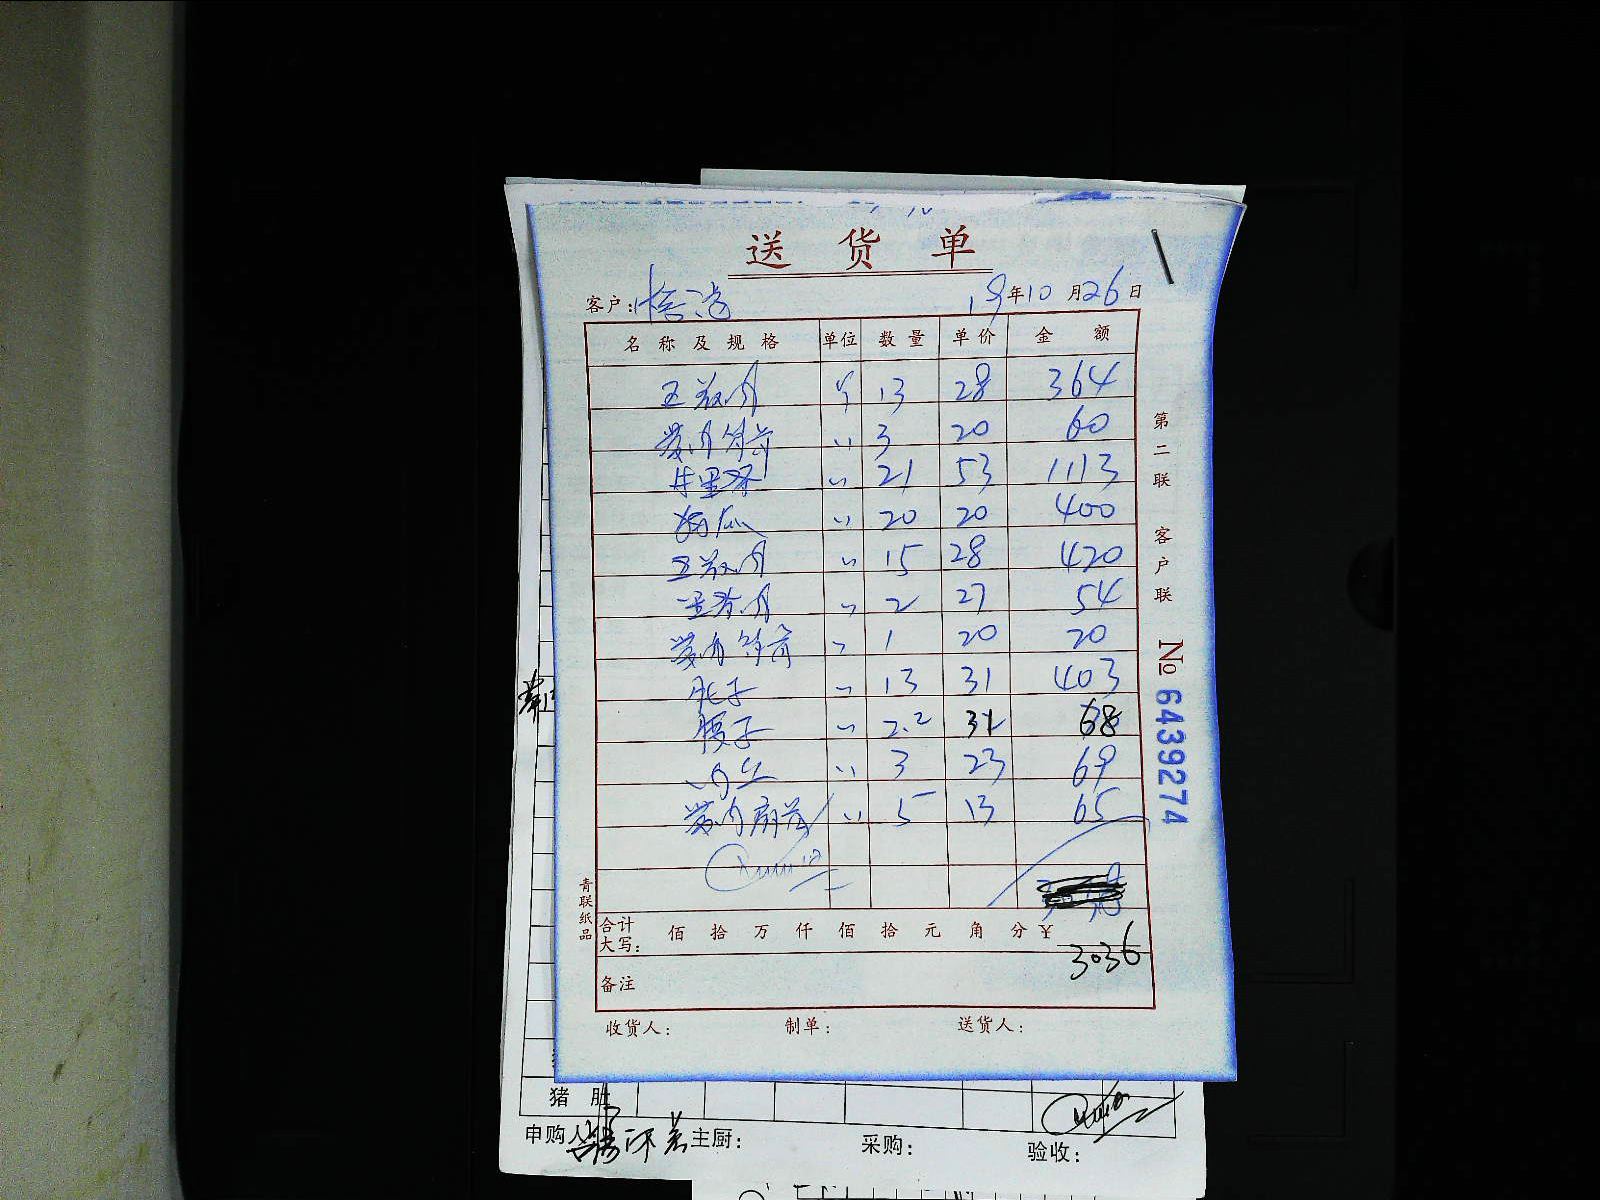 送货单
客户:
19年10月26日
名称及规格 单位 数量 单价 金额
五花肉 斤 13 28 364
3 20 60
牛里脊 〃 21 53 1113
〃 20 20 400
五花肉 〃 15 28 420
〃 2 27 54
〃 1 20 20
肚子 〃 13 31 403
腰子 〃 2.2 31 68
肉丝 〃 3 23 69
〃 5 13 65
合计大写: 佰 拾 万 仟 佰 拾 元 角 分 ¥ 3036
备注
收货人: 制单: 送货人:
第二联 客户联
№ 6439274
青联纸品
猪 肚
申购人 主厨: 采购: 验收: